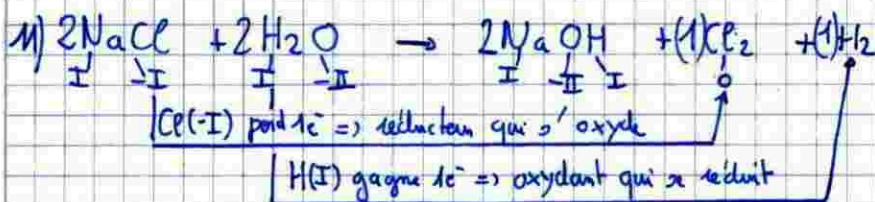 11) 2NaCl + 2H2O → 2NaOH + (1)Cl2 + (1)H2
I -I I -II I -II I 0
Cl(-I) perd 1e⁻ => réducteur qui s'oxyde
H(I) gagne 1e⁻ => oxydant qui se réduit